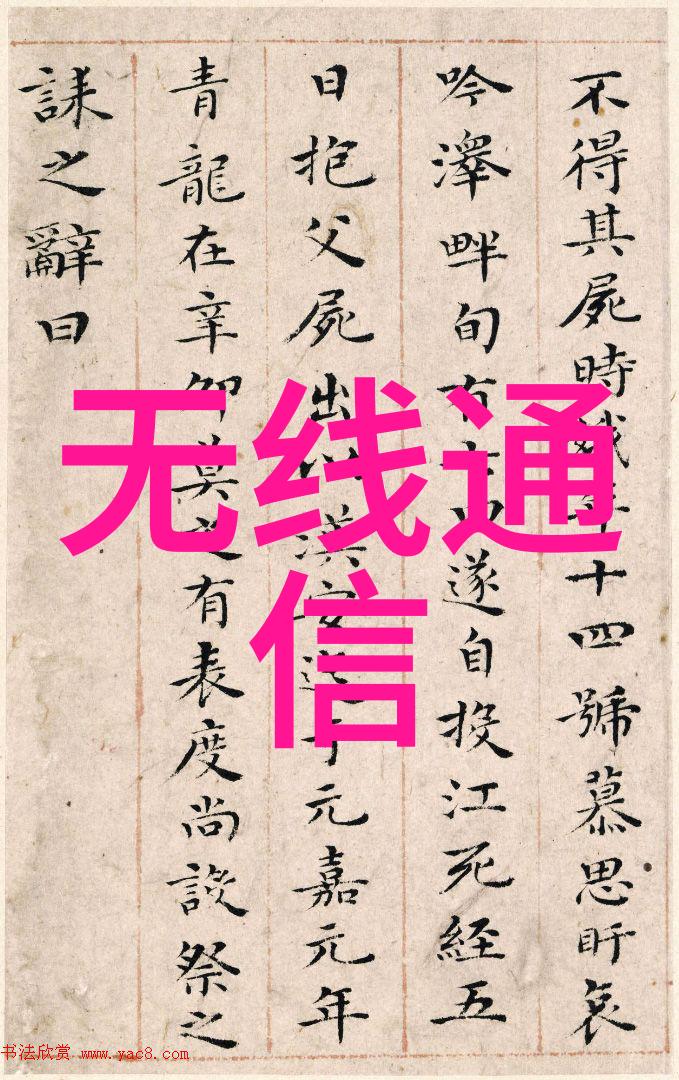 不得其屍時娥年十四號慕思盱哀
吟澤畔旬有七日遂自投江死經五
日抱父屍出以漢安迄于元嘉元年
青龍在辛卯莫之有表度尚設祭之
誄之辭曰
无线通
信
书法欣赏 www.yac8.com